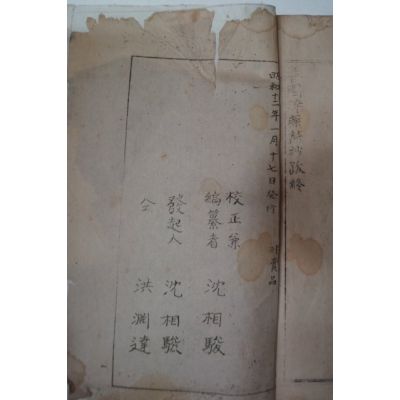 昭和十二年一月十七日発行
非賣品
校正兼
編纂者 沈相駿
發起人 沈相駿
仝 洪淵達